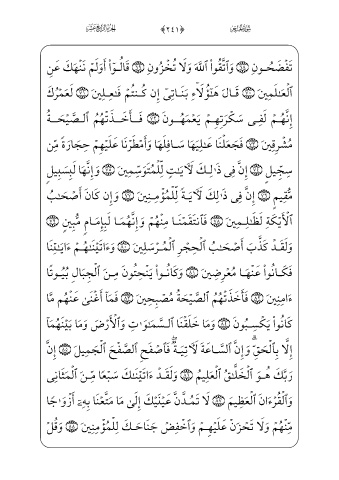 سُورَةُ الحِجْرِ ﴿٢٤١﴾ الجُزْءُ الرَّابِعَ عَشَرَ
تَفْضَحُونِ ٦٨ وَٱتَّقُوا۟ ٱللَّهَ وَلَا تُخْزُونِ ٦٩ قَالُوٓا۟ أَوَلَمْ نَنْهَكَ عَنِ
ٱلْعَـٰلَمِينَ ٧٠ قَالَ هَـٰٓؤُلَآءِ بَنَاتِىٓ إِن كُنتُمْ فَـٰعِلِينَ ٧١ لَعَمْرُكَ
إِنَّهُمْ لَفِى سَكْرَتِهِمْ يَعْمَهُونَ ٧٢ فَأَخَذَتْهُمُ ٱلصَّيْحَةُ
مُشْرِقِينَ ٧٣ فَجَعَلْنَا عَـٰلِيَهَا سَافِلَهَا وَأَمْطَرْنَا عَلَيْهِمْ حِجَارَةً مِّن
سِجِّيلٍ ٧٤ إِنَّ فِى ذَٰلِكَ لَـَٔايَـٰتٍ لِّلْمُتَوَسِّمِينَ ٧٥ وَإِنَّهَا لَبِسَبِيلٍ
مُّقِيمٍ ٧٦ إِنَّ فِى ذَٰلِكَ لَـَٔايَةً لِّلْمُؤْمِنِينَ ٧٧ وَإِن كَانَ أَصْحَـٰبُ
ٱلْأَيْكَةِ لَظَـٰلِمِينَ ٧٨ فَٱنتَقَمْنَا مِنْهُمْ وَإِنَّهُمَا لَبِإِمَامٍ مُّبِينٍ ٧٩
وَلَقَدْ كَذَّبَ أَصْحَـٰبُ ٱلْحِجْرِ ٱلْمُرْسَلِينَ ٨٠ وَءَاتَيْنَـٰهُمْ ءَايَـٰتِنَا
فَكَانُوا۟ عَنْهَا مُعْرِضِينَ ٨١ وَكَانُوا۟ يَنْحِتُونَ مِنَ ٱلْجِبَالِ بُيُوتًا
ءَامِنِينَ ٨٢ فَأَخَذَتْهُمُ ٱلصَّيْحَةُ مُصْبِحِينَ ٨٣ فَمَآ أَغْنَىٰ عَنْهُم مَّا
كَانُوا۟ يَكْسِبُونَ ٨٤ وَمَا خَلَقْنَا ٱلسَّمَـٰوَٰتِ وَٱلْأَرْضَ وَمَا بَيْنَهُمَآ
إِلَّا بِٱلْحَقِّ ۗ وَإِنَّ ٱلسَّاعَةَ لَـَٔاتِيَةٌ ۖ فَٱصْفَحِ ٱلصَّفْحَ ٱلْجَمِيلَ ٨٥ إِنَّ
رَبَّكَ هُوَ ٱلْخَلَّـٰقُ ٱلْعَلِيمُ ٨٦ وَلَقَدْ ءَاتَيْنَـٰكَ سَبْعًا مِّنَ ٱلْمَثَانِى
وَٱلْقُرْءَانَ ٱلْعَظِيمَ ٨٧ لَا تَمُدَّنَّ عَيْنَيْكَ إِلَىٰ مَا مَتَّعْنَا بِهِۦٓ أَزْوَٰجًا
مِّنْهُمْ وَلَا تَحْزَنْ عَلَيْهِمْ وَٱخْفِضْ جَنَاحَكَ لِلْمُؤْمِنِينَ ٨٨ وَقُلْ